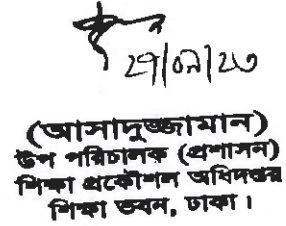 ২৭/০৯/২৩
(আসাদুজ্জামান)
উপ পরিচালক (প্রশাসন)
শিক্ষা প্রকৌশল অধিদপ্তর
শিক্ষা ভবন, ঢাকা।